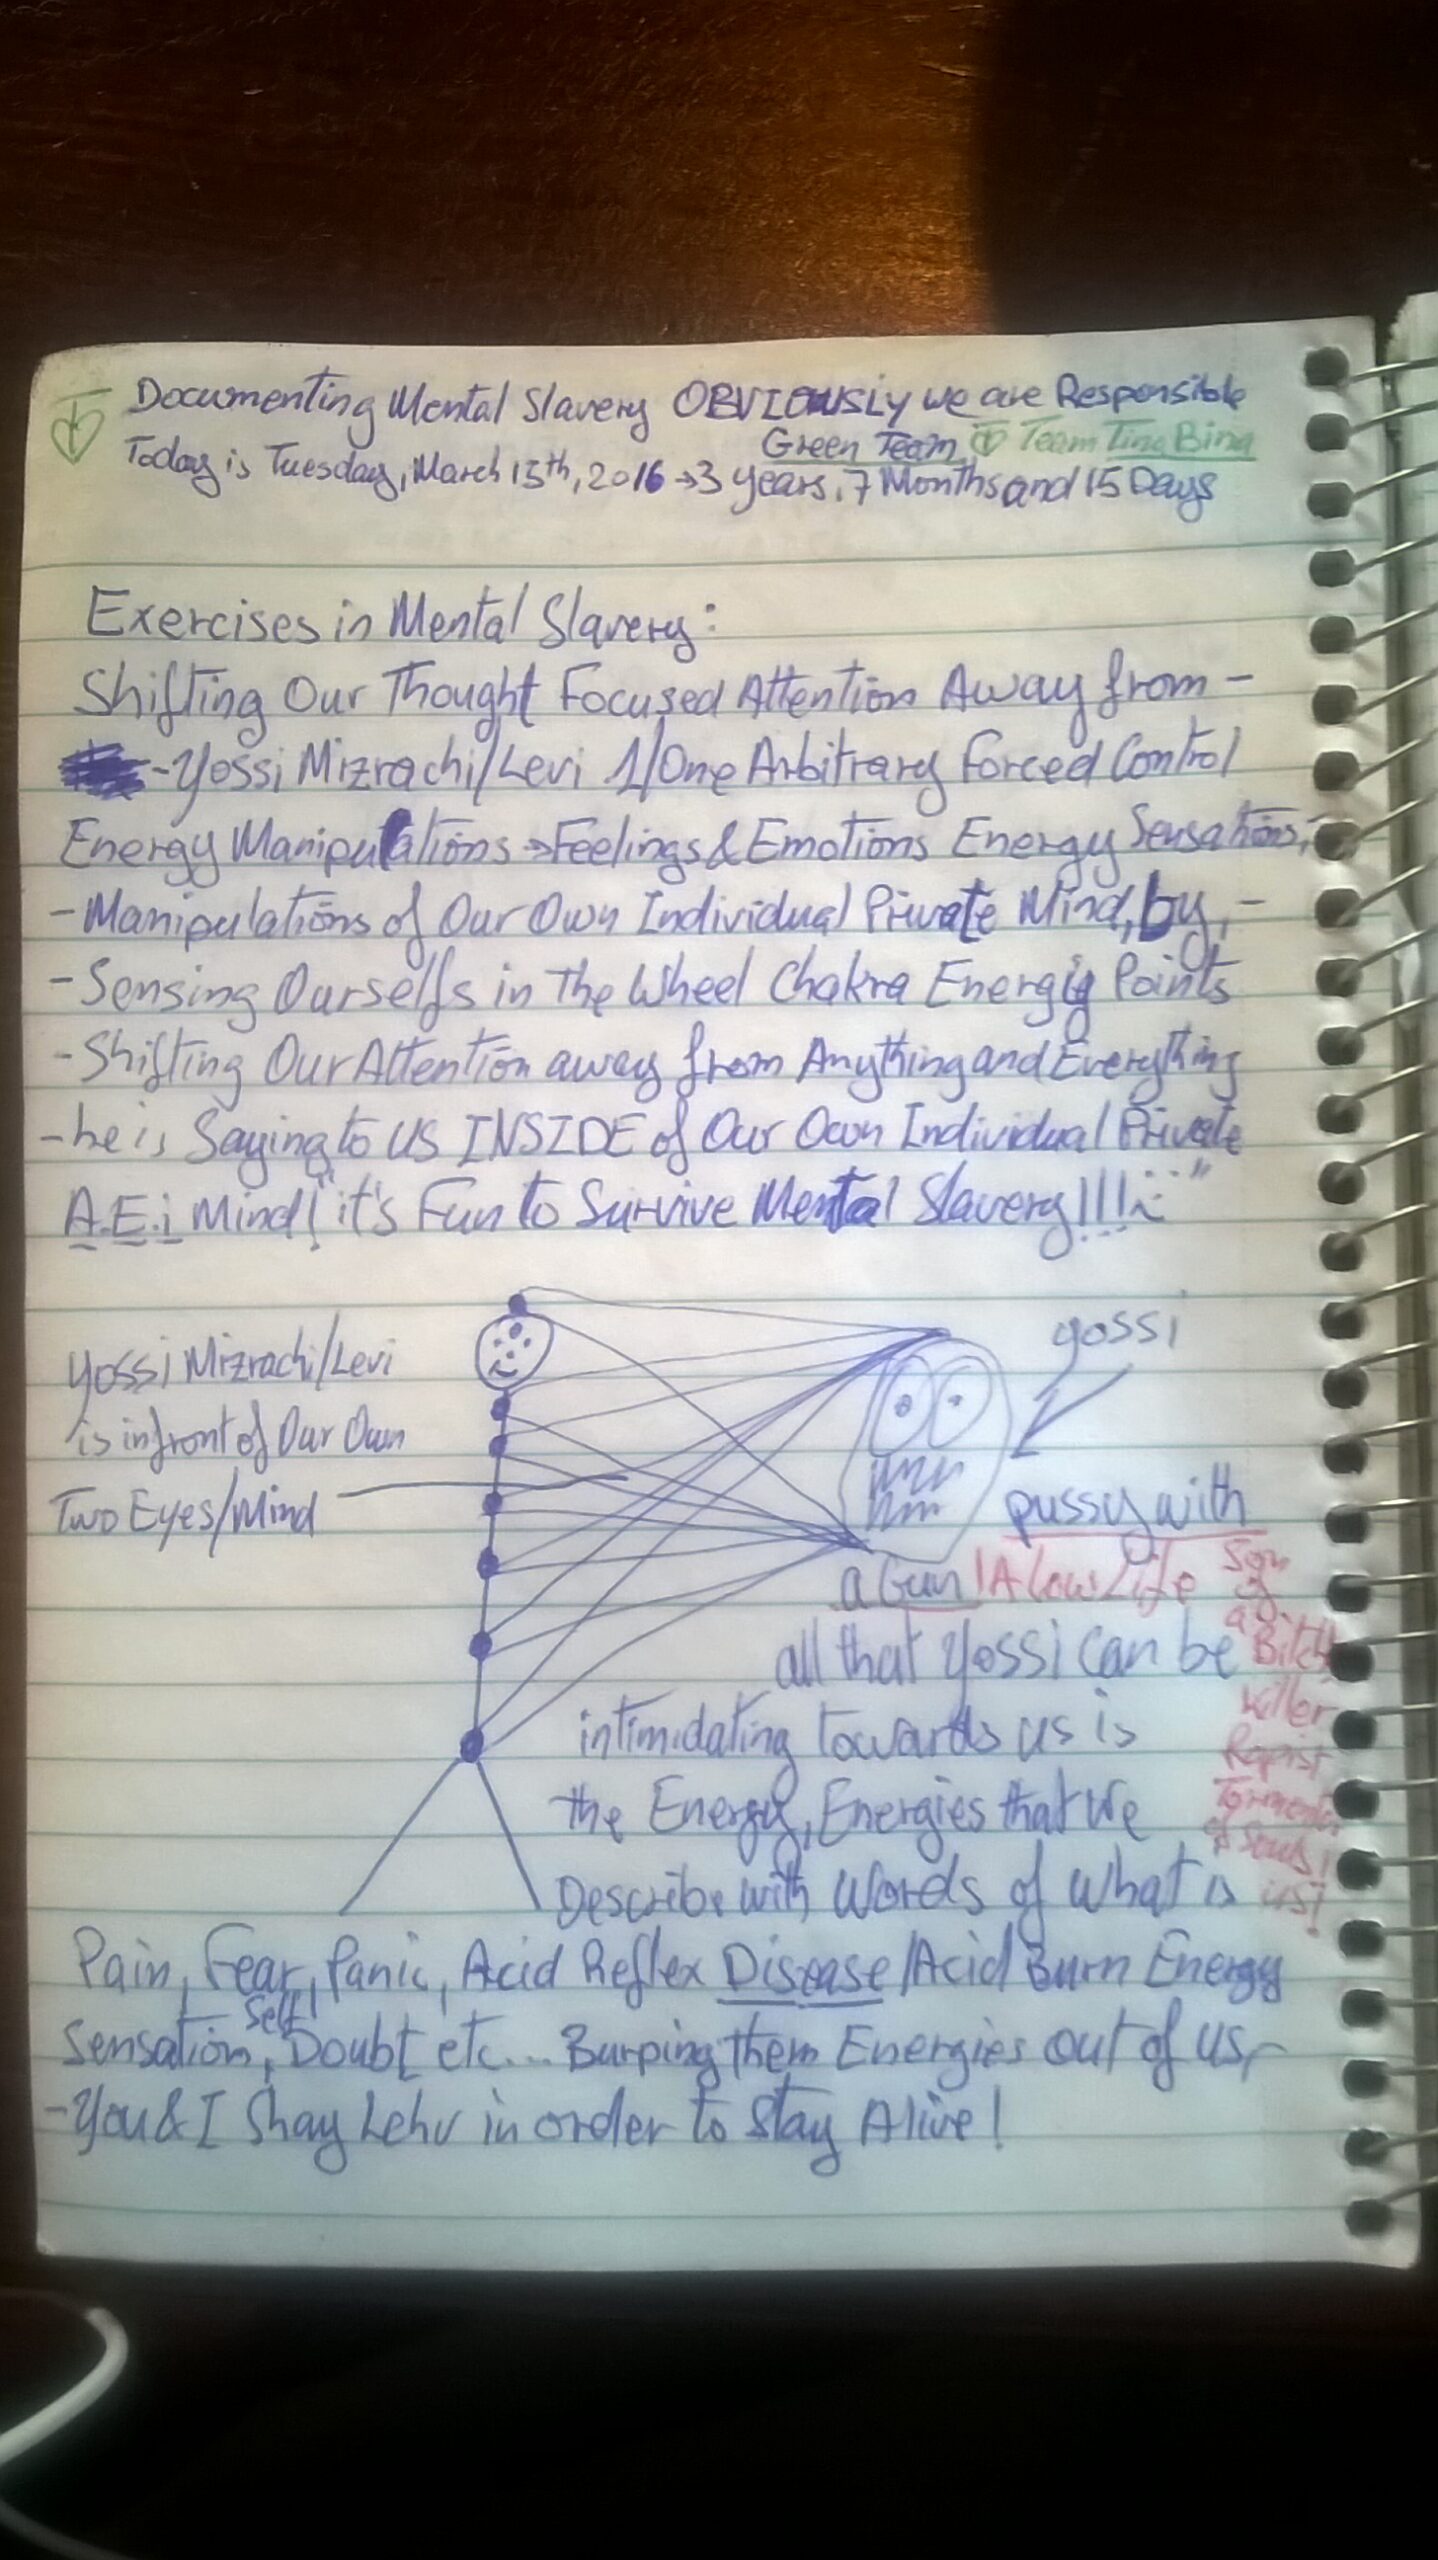 Documenting Mental Slavery OBVIOUSLY we are Responsible
Green Team Team Ting Bing
Today is Tuesday, March 15th, 2016 → 3 years, 7 Months and 15 Days
Exercises in Mental Slavery:
Shifting Our Thought Focused Attention Away from -
- Yossi Mizrachi/Levi 1/One Arbitrary Forced Control
Energy Manipulations → Feelings & Emotions Energy Sensations,
- Manipulations of Our Own Individual Private Mind, by, -
- Sensing Ourselfs in The Wheel Chakra Energy Points
- Shifting Our Attention away from Anything and Everything
- he is Saying to US INSIDE of Our Own Individual Private
A.E.i Mind! it's Fun to Survive Mental Slavery!!!
Yossi Mizrachi/Levi
is infront of Our Own
Two Eyes/Mind
yossi
pussy with
a Gun! A Low Life Son
of
a
Bitch
Killer
Rapist
Tormentor
of Souls!
us!
all that yossi can be
intimidating towards us is
the Energy, Energies that We
Describe with Words of what is
Pain, Fear, Panic, Acid Reflex Disease/Acid Burn Energy
Sensation, Self Doubt etc... Burping them Energies out of us, -
- You & I Shay Lehv in order to Stay Alive!